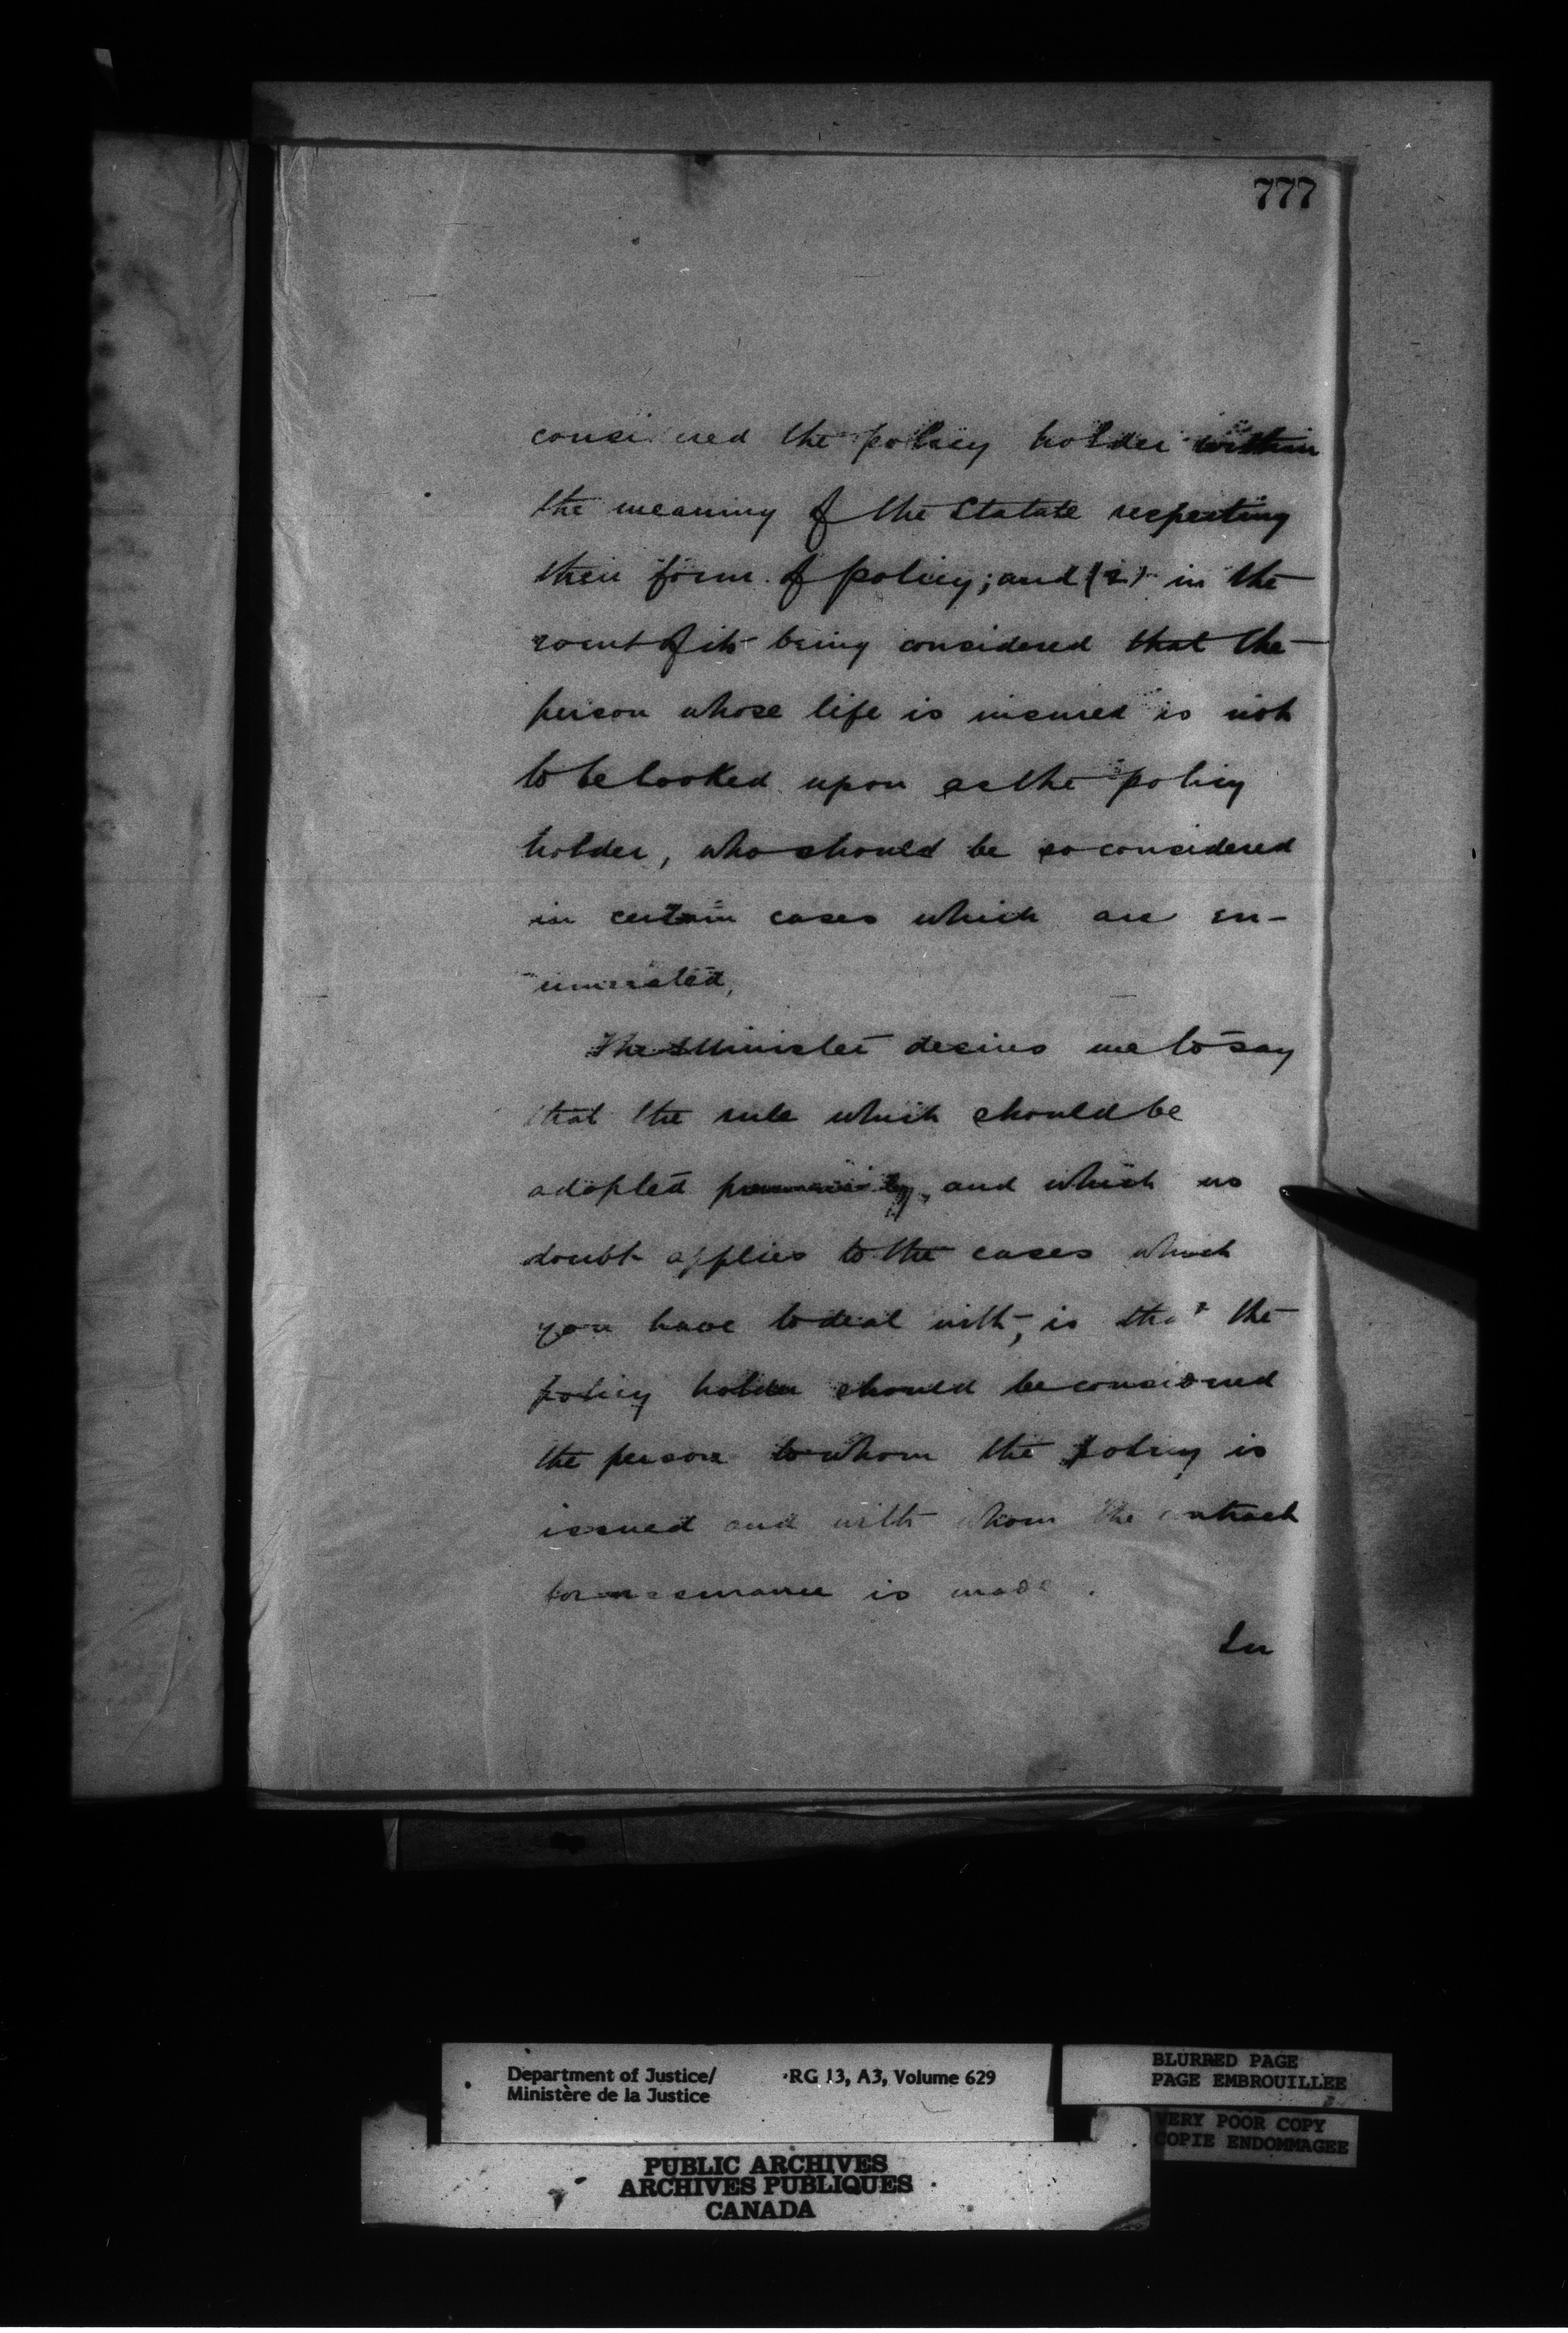 777
considered the policy holder within
the meaning of the Statute respecting
their form of policy; and (2) in the
event of its being considered that the
person whose life is insured is not
to be looked upon as the policy
holder, who should be so considered
in certain cases which are en-
umerated,
The Minister desires me to say
that the rule which should be
adopted and which no
doubt applies to the cases which
you have to deal with, is that the
policy holder should be considered
the person to whom the policy is
issued and with whom the contract
for assurance is made.
In
Department of Justice/
Ministère de la Justice
RG 13, A3, Volume 629
BLURRED PAGE
PAGE EMBROUILLEE
VERY POOR COPY
COPIE ENDOMMAGEE
PUBLIC ARCHIVES
ARCHIVES PUBLIQUES
CANADA